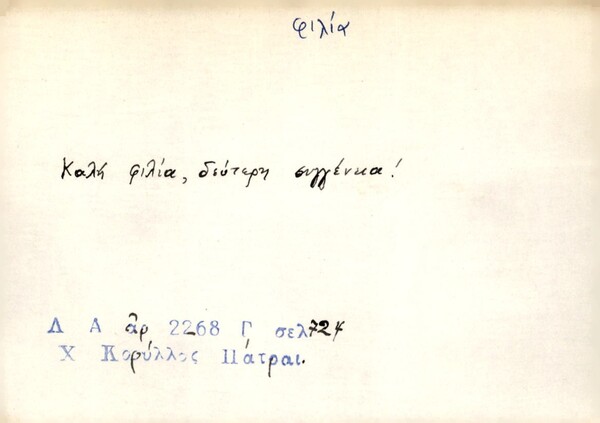 φιλία
Καλή φιλία, δεύτερη συγγένεια!
Λ Α ἀρ 2268 Γ σελ 724
Χ Κορύλλος Πάτραι.